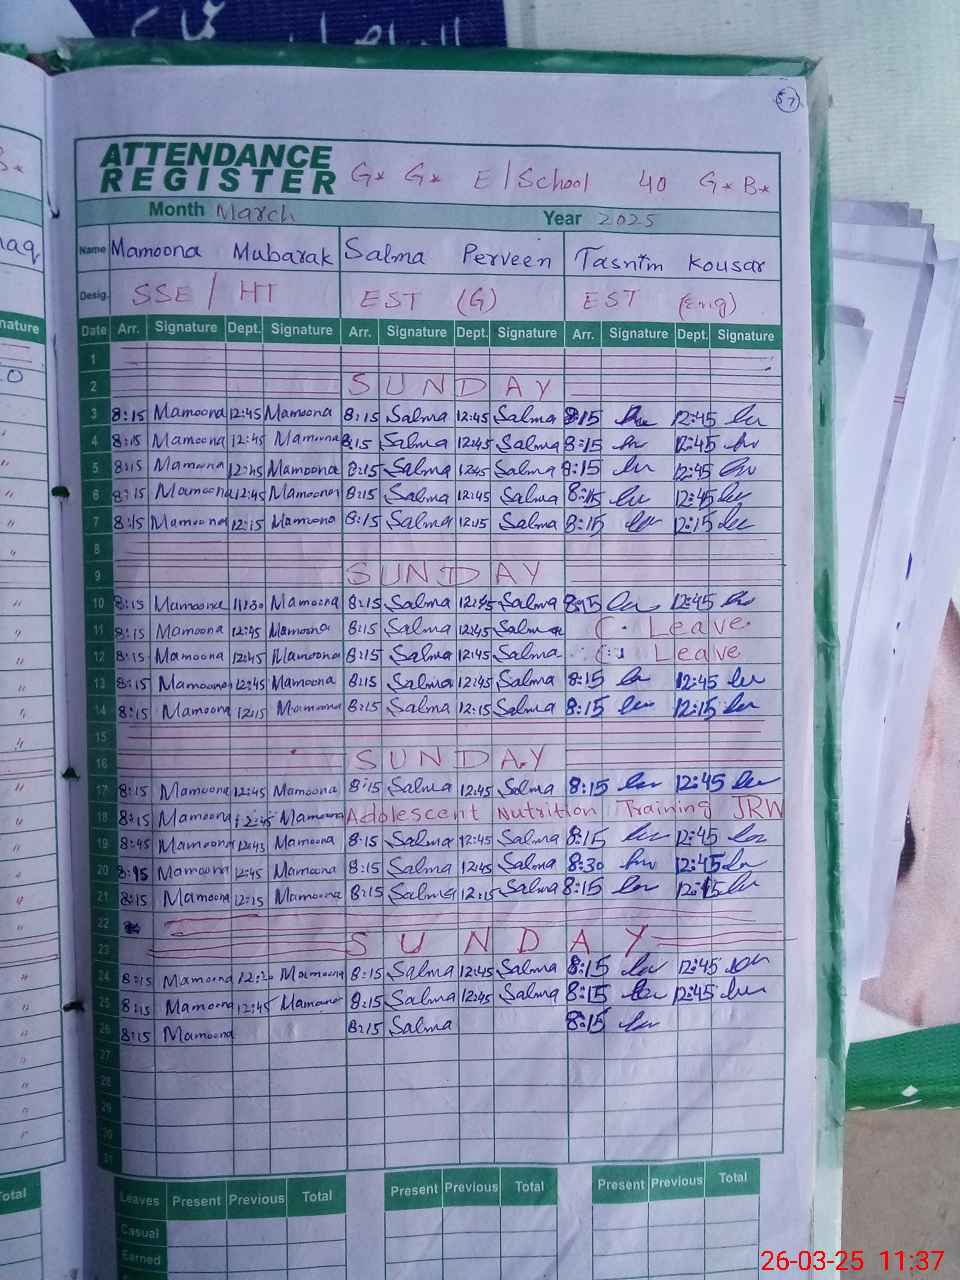 57
ATTENDANCE
REGISTER G* G* E/School 40 G*B*
Month March Year 2025
Name Mamoona Mubarak Salma Perveen Tasnim Kousar
Desig. SSE / HT EST (G) EST (Eng)
Date Arr. Signature Dept. Signature Arr. Signature Dept. Signature Arr. Signature Dept. Signature
1
2 SUNDAY
3 8:15 Mamoona 12:45 Mamoona 8:15 Salma 12:45 Salma 8:15 12:45
4 8:15 Mamoona 12:45 Mamoona 8:15 Salma 12:45 Salma 8:15 12:45
5 8:15 Mamoona 12:45 Mamoona 8:15 Salma 12:45 Salma 8:15 12:45
6 8:15 Mamoona 12:45 Mamoona 8:15 Salma 12:45 Salma 8:15 12:45
7 8:15 Mamoona 12:15 Mamoona 8:15 Salma 12:15 Salma 8:15 12:15
8
9 SUNDAY
10 8:15 Mamoona 11:30 Mamoona 8:15 Salma 12:45 Salma 8:15 12:45
11 8:15 Mamoona 12:45 Mamoona 8:15 Salma 12:45 Salma C. Leave
12 8:15 Mamoona 12:45 Mamoona 8:15 Salma 12:45 Salma C. Leave
13 8:15 Mamoona 12:45 Mamoona 8:15 Salma 12:45 Salma 8:15 12:45
14 8:15 Mamoona 12:15 Mamoona 8:15 Salma 12:15 Salma 8:15 12:15
15
16 SUNDAY
17 8:15 Mamoona 12:45 Mamoona 8:15 Salma 12:45 Salma 8:15 12:45
18 8:15 Mamoona 12:45 Mamoona Adolescent Nutrition Training JRW
19 8:45 Mamoona 12:45 Mamoona 8:15 Salma 12:45 Salma 8:15 12:45
20 8:15 Mamoona 12:45 Mamoona 8:15 Salma 12:45 Salma 8:30 12:45
21 8:15 Mamoona 12:15 Mamoona 8:15 Salma 12:15 Salma 8:15 12:15
22
23 SUNDAY
24 8:15 Mamoona 12:20 Mamoona 8:15 Salma 12:45 Salma 8:15 12:45
25 8:15 Mamoona 12:45 Mamoona 8:15 Salma 12:45 Salma 8:15 12:45
26 8:15 Mamoona 8:15 Salma 8:15
27
28
29
30
31
Leaves Present Previous Total Present Previous Total Present Previous Total
Casual
Earned
Total
26-03-25 11:37